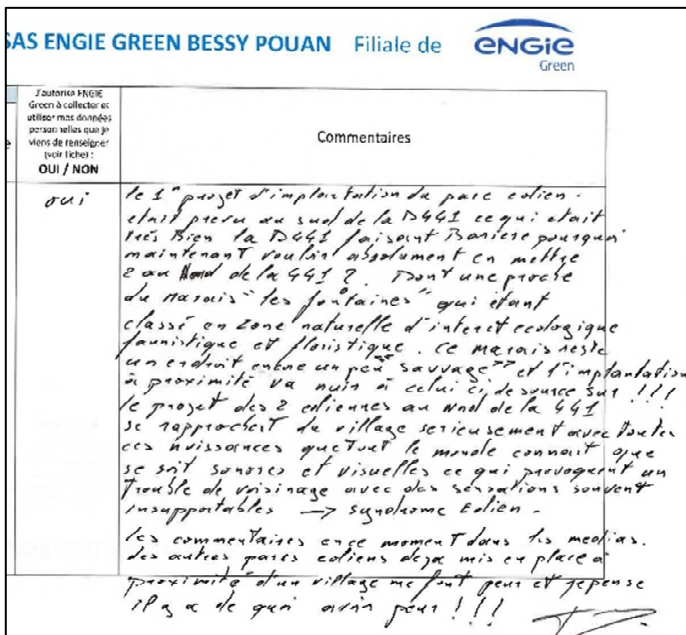 SAS ENGIE GREEN BESSY POUAN Filiale de ENGIE
Green
J'autorise ENGIE
Green à collecter et
utiliser mes données
personnelles que je
viens de renseigner
(voir fiche) :
OUI / NON
Commentaires
e
oui
le 1er projet d'implantation du parc eolien.
etait prevu au sud de la D441 ce qui etait
très Bien la D441 faisant Bariere pourquoi
maintenant vouloir absolument en mettre
2 au Nord de la 441 ? Dont une proche
du Marais "les fontaines" qui étant
classé en zone naturelle d'interet ecologique
faunistique et floristique. Ce marais reste
un endroit encore un peu "sauvage" et l'implantation
à proximité va nuir à celui ci, de source sur !!!
le projet des 2 eoliennes au Nord de la 441
se rapprochent du village serieusement avec toutes
ces nuissances que tout le monde connait que
se soit sonores et visuelles ce qui provoquent un
Trouble de voisinage avec des sensations souvent
insupportables → syndrome Eolien.
les commentaires en ce moment dans les medias.
des autres parcs eoliens deja mis en place à
proximité d'un village me font peur et je pense
il y a de quoi avoir peur !!!